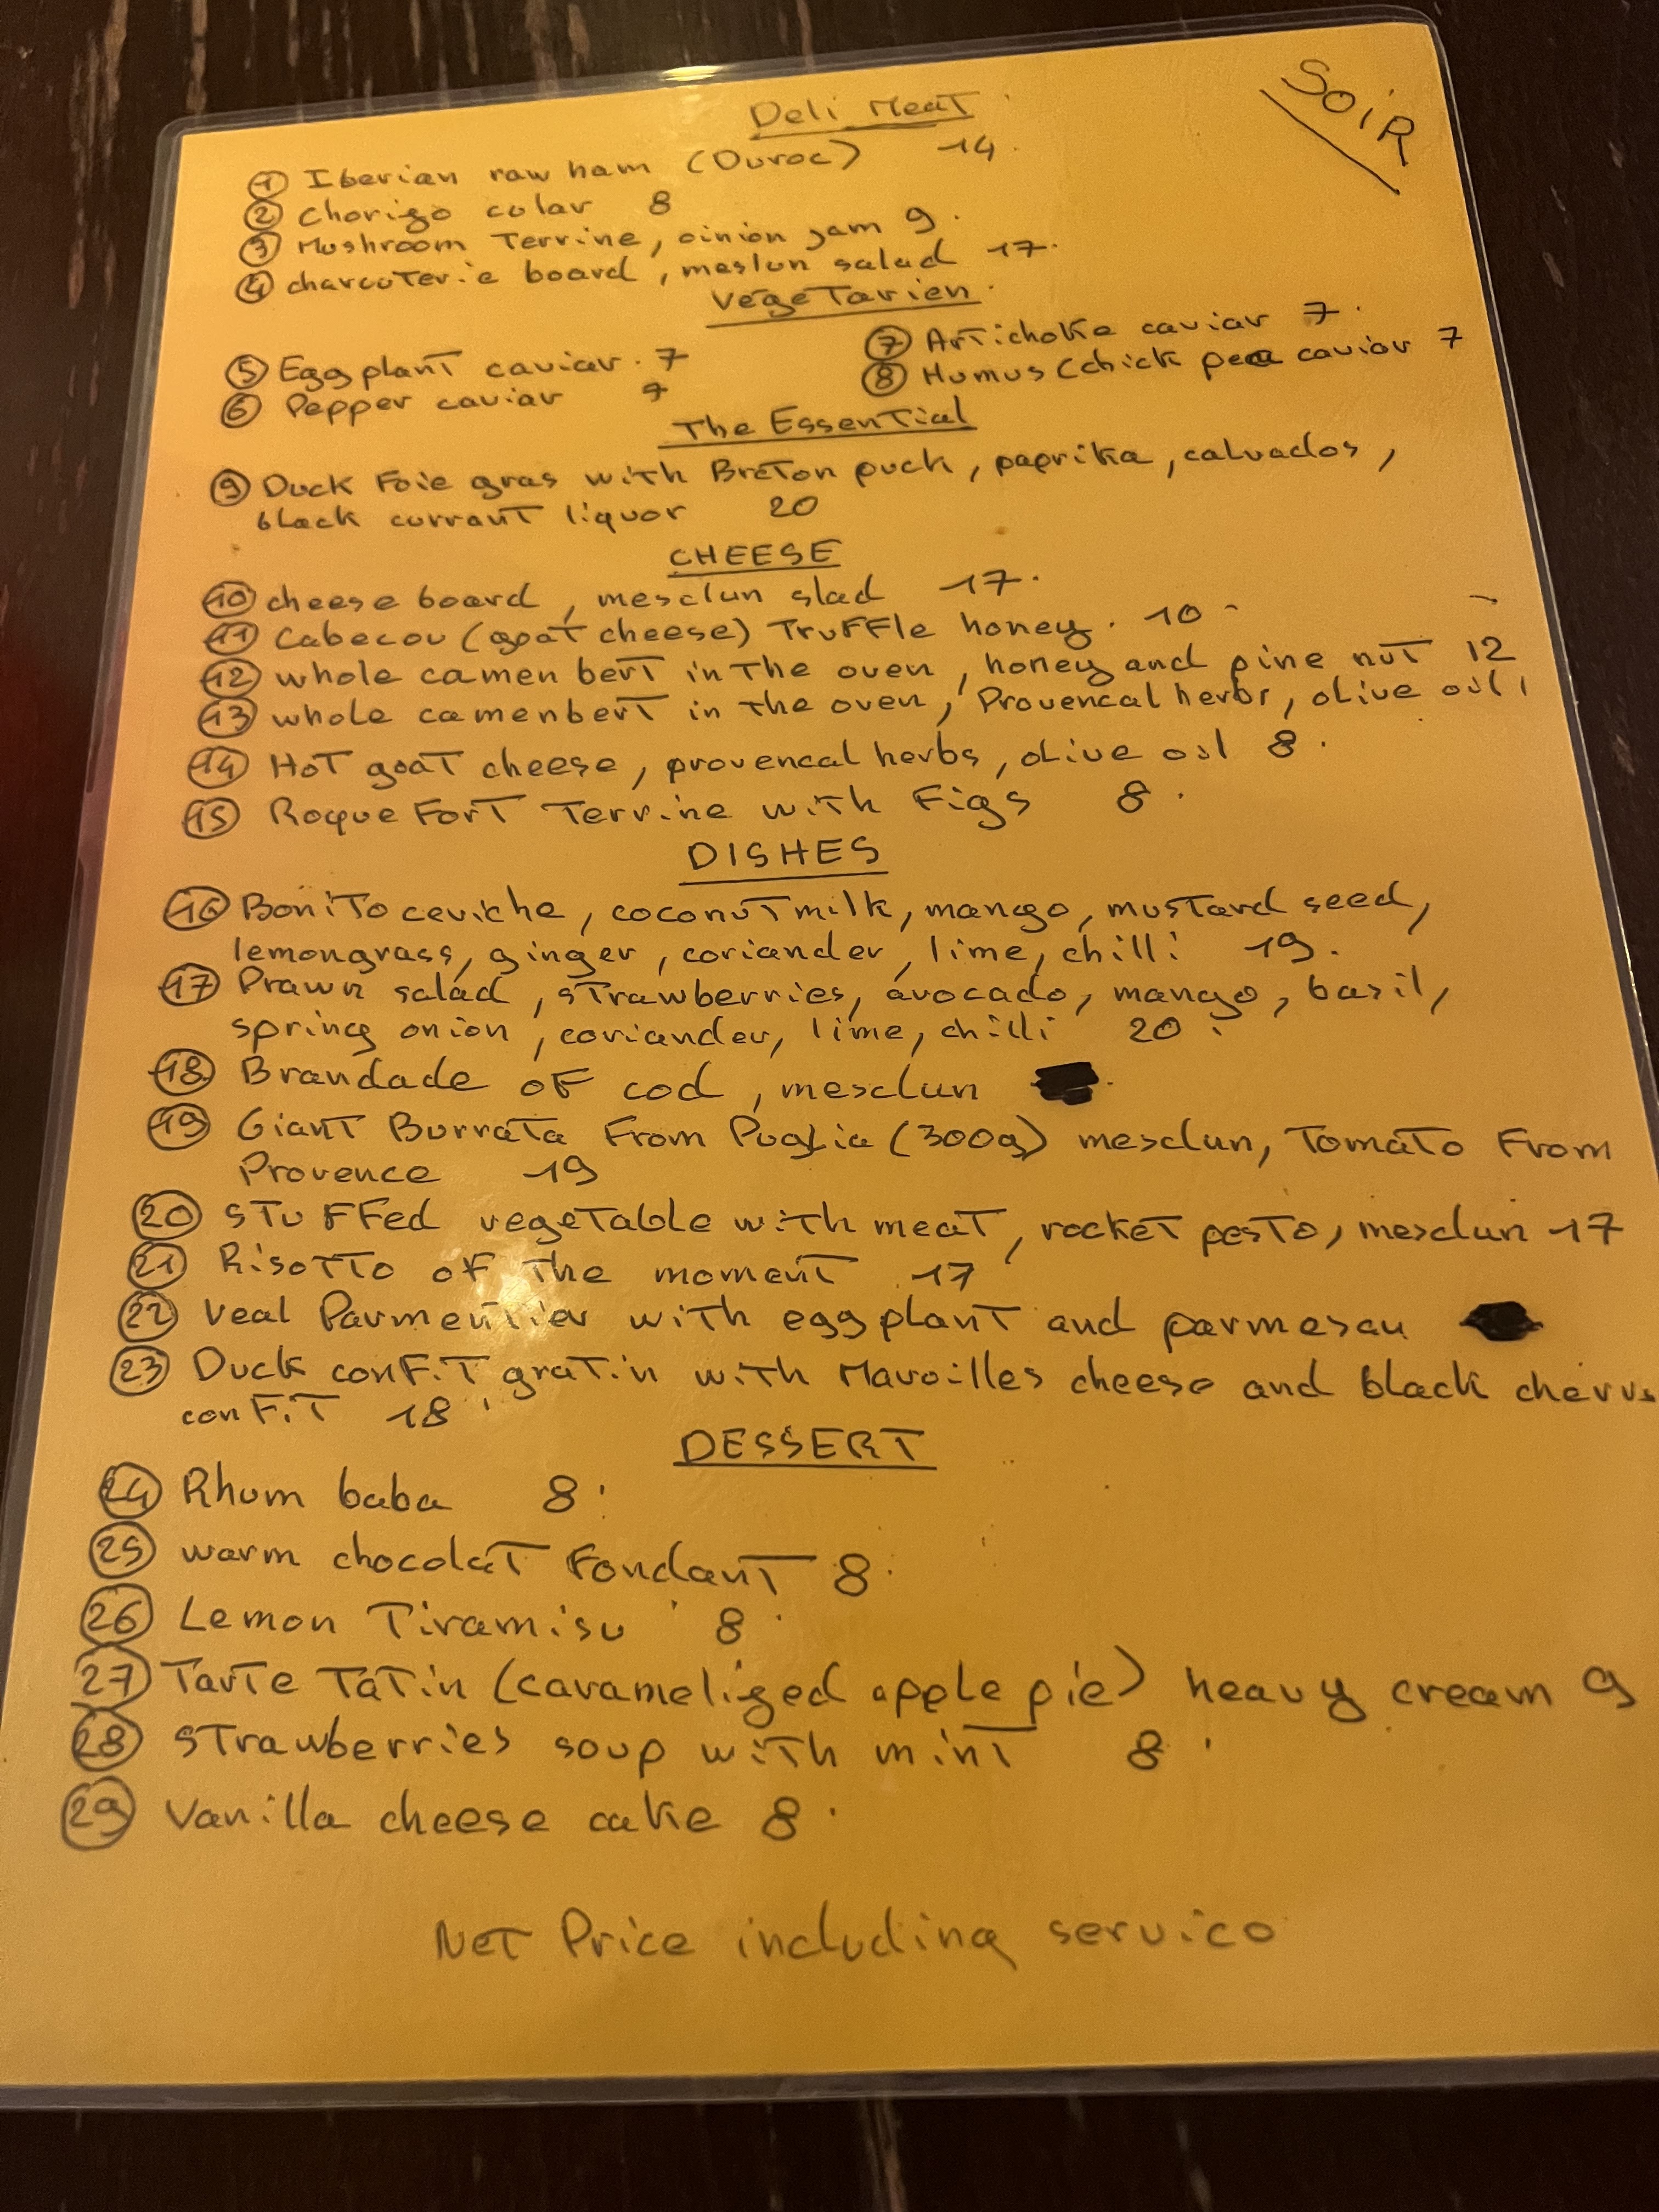 SOiR
Deli Meat
1 Iberian raw ham (Duroc) 14
2 chorizo cular 8
3 Mushroom Terrine, oinion jam 9
4 charcuterie board, meslun salad 17
Vegetarien
5 Eggplant caviar 7
6 Pepper caviar 7
7 Artichoke caviar 7
8 Humus (chick pea caviar 7
The Essential
9 Duck Foie gras with Breton puck, paprika, calvados,
black currant liquor 20
CHEESE
10 cheese board, mesclun slad 17
11 Cabecou (goat cheese) Truffle honey 10
12 whole camenbert in the oven, honey and pine nut 12
13 whole camenbert in the oven, Provencal herbs, olive oil
14 Hot goat cheese, provencal herbs, olive oil 8
15 Roquefort Terrine with Figs 8
DISHES
16 Bonito ceviche, coconut milk, mango, mustard seed,
lemongrass, ginger, coriander, lime, chilli 19
17 Prawn salad, strawberries, avocado, mango, basil,
spring onion, coriander, lime, chilli 20
18 Brandade of cod, mesclun
19 Giant Burrata From Puglia (300g) mesclun, Tomato From
Provence 19
20 Stuffed vegetable with meat, rocket pesto, mesclun 17
21 Risotto of the moment 17
22 Veal Parmentier with eggplant and parmesan
23 Duck confit gratin with Maroilles cheese and black
confit 18
DESSERT
24 Rhum baba 8
25 warm chocolat Fondant 8
26 Lemon Tiramisu 8
27 Tarte Tatin (caramelized apple pie) heavy cream 9
28 Strawberries soup with mint 8
29 Vanilla cheese cake 8
Net Price including service